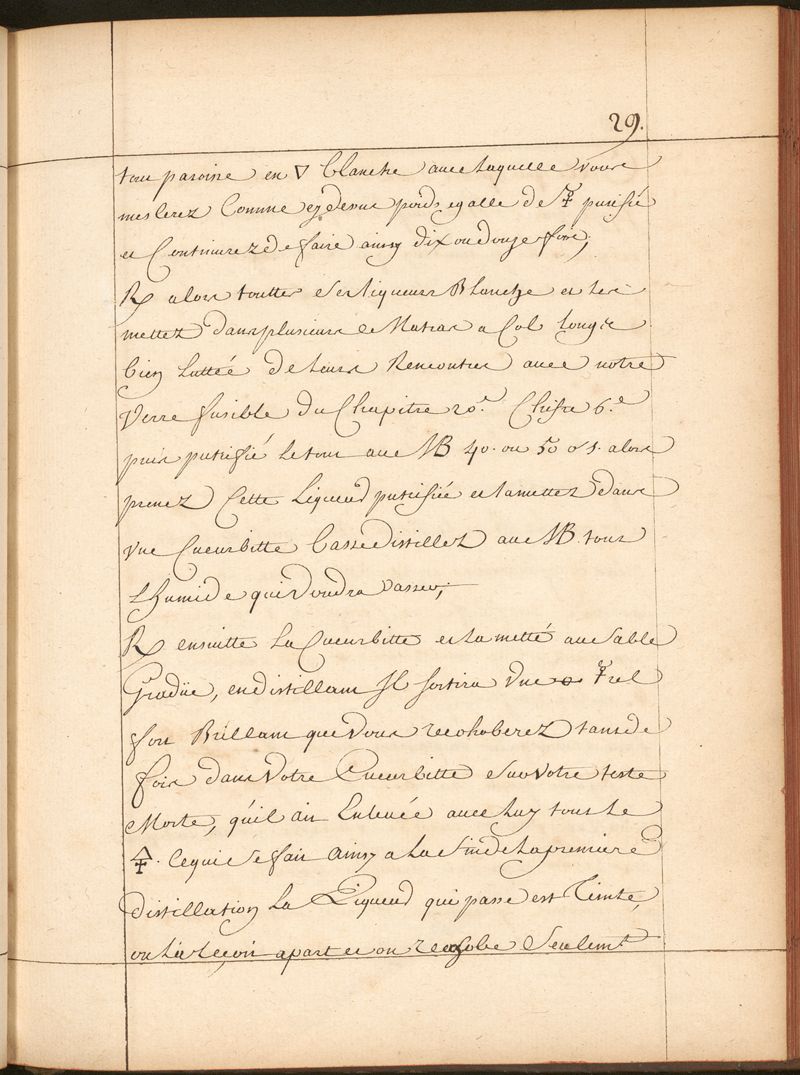 29.
tout paroisse en 🜄 blanche avec laquelle vous
meslerez Comme cy devant poids egalle de ☿ purifié
et Continuerez de faire ainsy dix ou douze fois,
R alors touttes ses liqueurs Blanche et les
mettez dans plusieurs Matras a Col long et
bien Luttéé de leurs Rencontres avec notre
Verre fusible du Chapitre 20.e Chifre 6.e
puis putrifié le tout au MB 40. ou 50 js. alors
prenez Cette Liqueur putrifiée et la mettez dans
vne Cucurbitte basse distillez au MB. tout
Lhumide qui Voudra Passer,
R ensuitte La Cucurbitte et La metté au Sable
Gradüe, en distillant Jl Sortira vne ☿ rel
fort Brillant que Vous recohoberez tant de
fois dans Votre Cucurbitte Sur Votre teste
Morte, qu'il ait Enlevée avec Luy tout Le
🜍. Ce qui Se fait Ainsy a La fin de La premiere
distillation La Liqueur qui passe est Teinte,
on La reçoit apart et on recohobe Seulemt